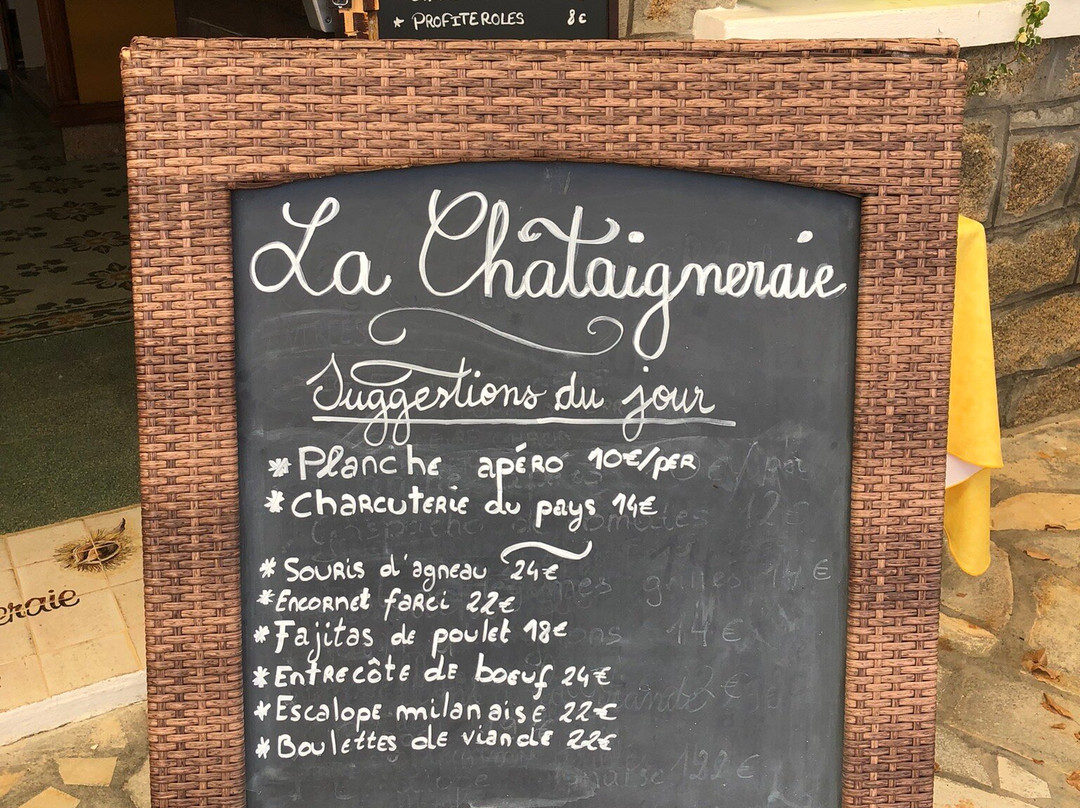 * PROFITEROLES 8€
La Chataigneraie
Suggestions du jour
* Planche apéro 10€/per
* Charcuterie du pays 14€
* Souris d'agneau 24€
* Encornet farci 22€
* Fajitas de poulet 18€
* Entrecôte de boeuf 24€
* Escalope milanaise 22€
* Boulettes de viande 22€
eraie